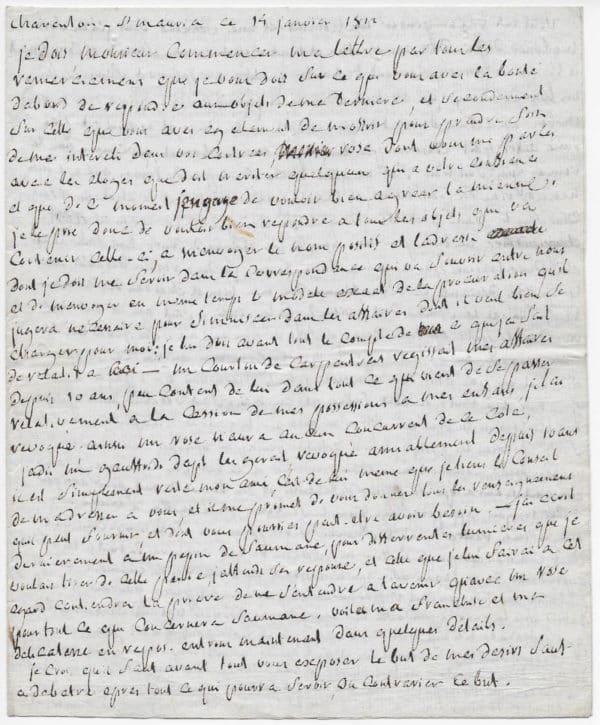 charenton - St maurice ce 14 janvier 1811
je dois monsieur Commencer ma lettre par tous les
remerciemens que je vous dois sur ce que vous avez la bonté
dabord de repondre aux objets de ma derniere, et secondement
sur celle que vous avez egalement de moffrir pour prendre soin
de mes interets dans vos contrées rose dont vous me parlez
avec les eloges que doit meriter quelquun qui a votre confiance
et que de ce moment jengage de vouloir bien agreer la mienne.
je le prie donc de vouloir bien repondre a tous les objets que va
Contenir celle-ci, a menvoyer le nom positif et ladresse
dont je dois me servir dans la correspondance qui va souvrir entre nous
et de menvoyer en meme temps le modele exact de la procuration quil
jugera necessaire pour simmiscer dans les affaires dont il veut bien se
charger pour moi; je lui dois avant tout le compte de ce que jai fait
de relatif a - mr Courtois de Carpentras regissait mes affaires
depuis 10 ans, peu content de lui dans tout ce qui vient de se passer
relativement a la Cession de mes possessions a mes enfans, je lai
revoqué. ainsi mr rose naura aucun Concurrent de ce coté,
jadis mr gaufridy dapt les gerait revoqué depuis 10 ans
il est simplement resté mon ami, Cest de lui meme que je tiens le Conseil
de madresser a vous, et il me promet de vous donner tous les renseignemens
quil peut fournir et dont vous pourriez peut-etre avoir besoin - jai ecrit
dernierement a mr pepin de Saumane, pour differentes lumieres que je
voulais tirer de celle jattends sa reponse, et celle que je lui ferai a cet
egard contiendra la priere de ne sentendre a lavenir quavec mr rose
pour tout ce qui Concernera Saumane, voila ma franchise et ma
delicatesse en repos. entrons maintenant dans quelques details.
je crois quil faut avant tout vous exposer le but de mes desirs sauf
a debatre apres tout ce qui pourra servir, ou contrarier ce but.